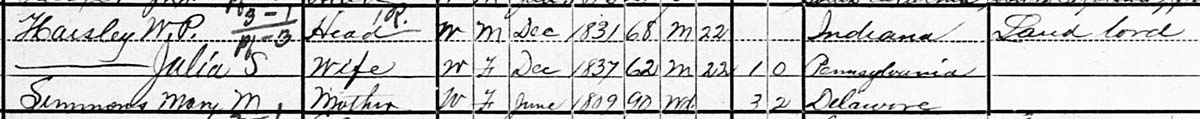 Haisley W.P. Head W M Dec 1831 68 M 22 Indiana Land lord
Julia S Wife W F Dec 1837 62 M 22 1 0 Pennsylvania
Simmons Mary M Mother W F June 1809 90 Wd 3 2 Delaware